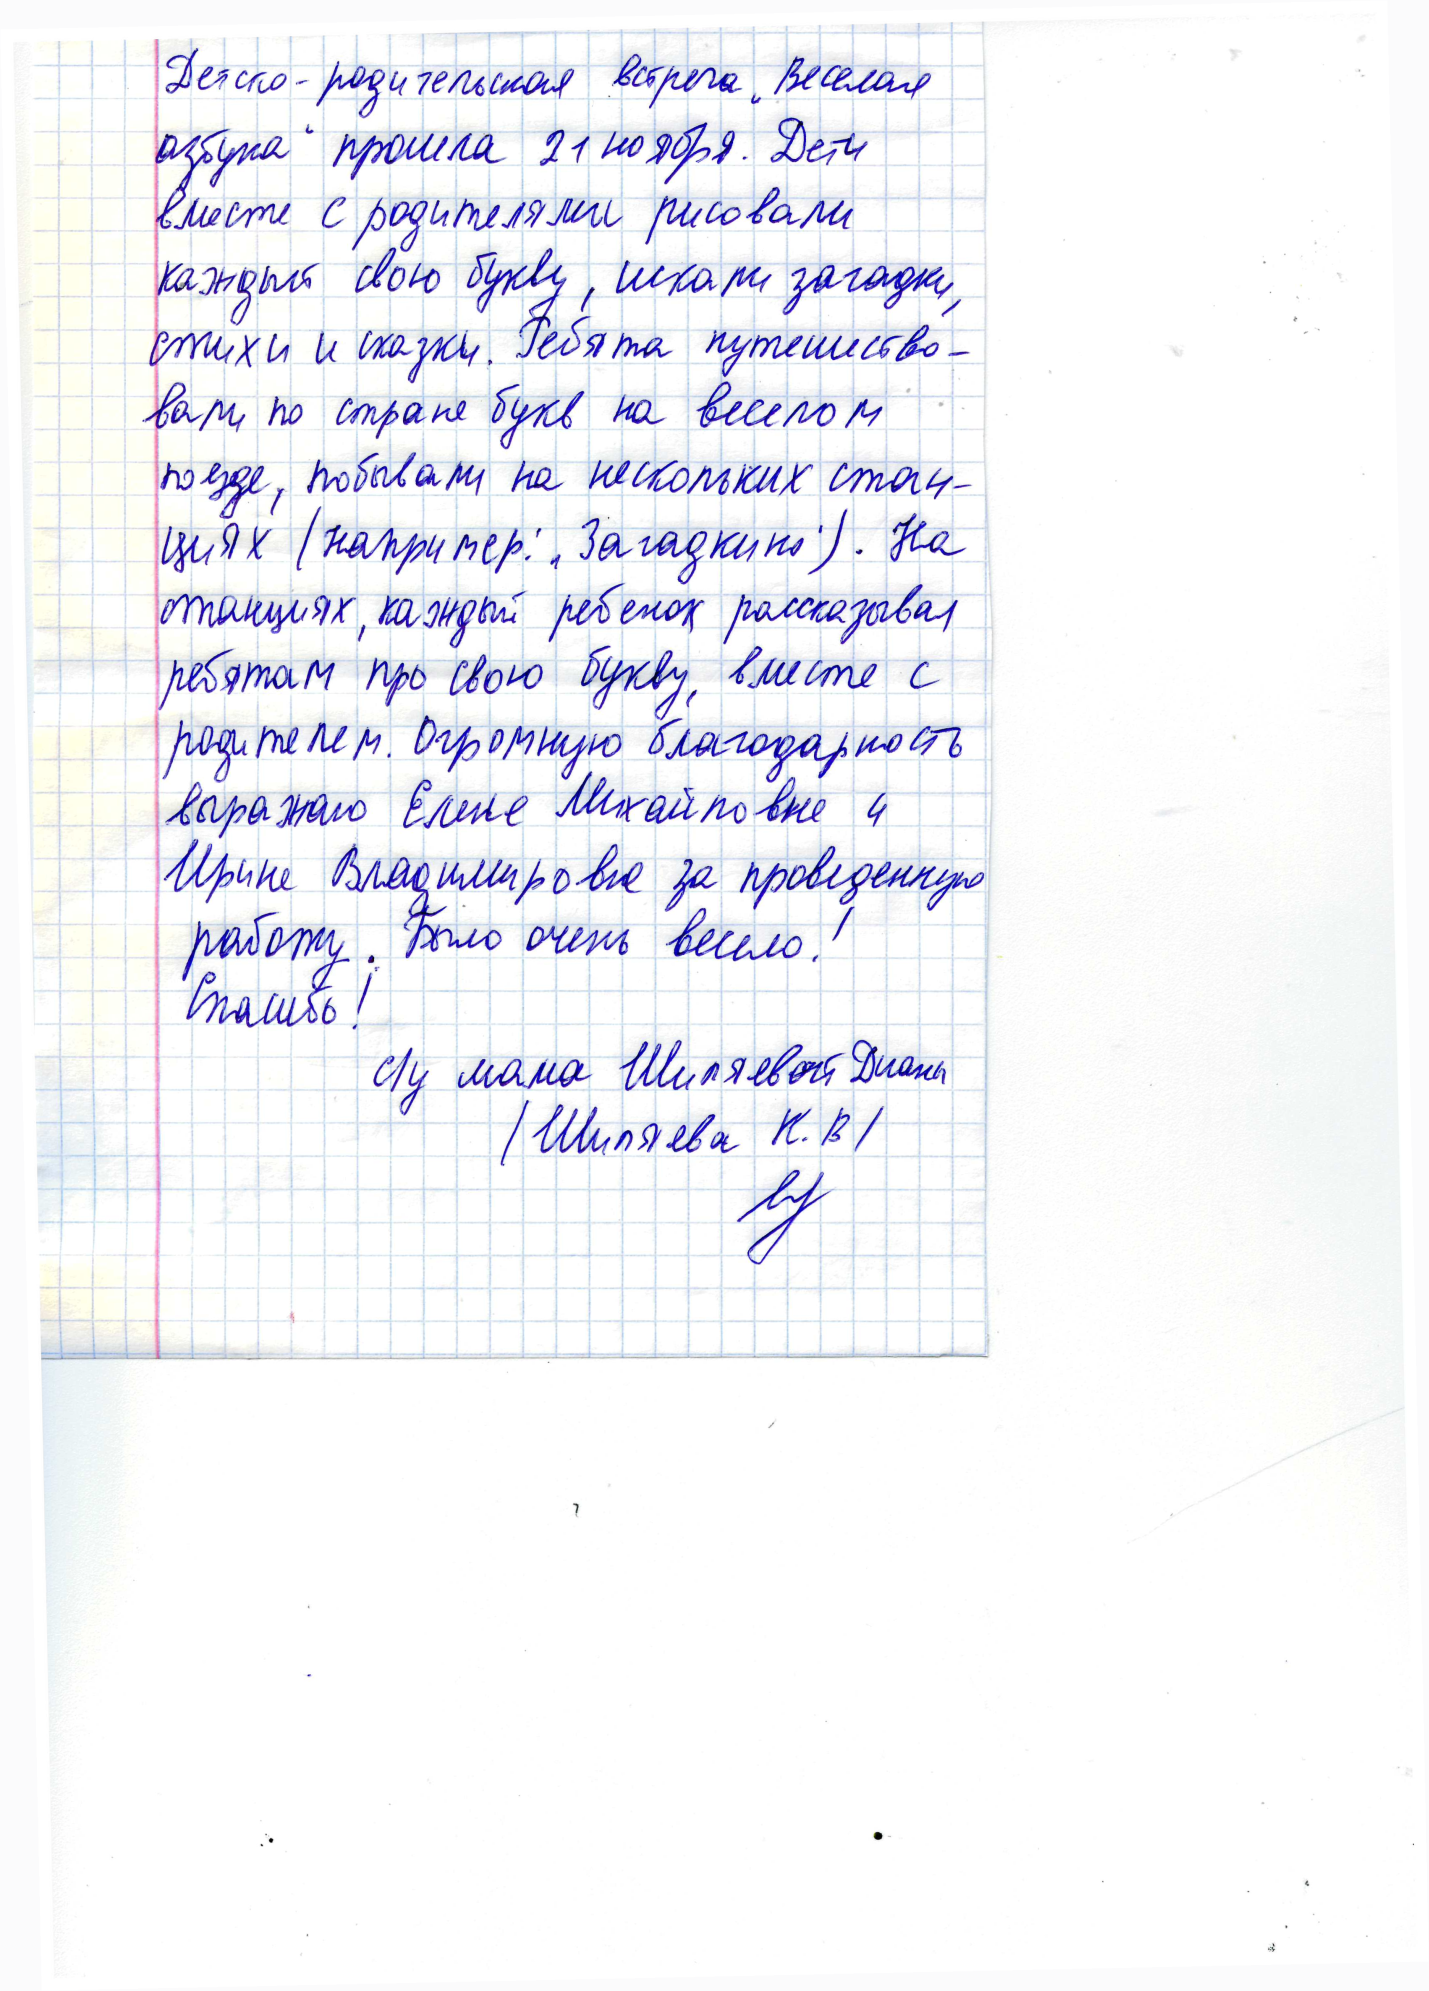 Детско-родительская встреча „Веселая
азбука“ прошла 21 ноября. Дети
вместе с родителями рисовали
каждый свою букву, искали загадки,
стихи и сказки. Ребята путешество-
вали по стране букв на веселом
поезде, побывали на нескольких стан-
циях (например: „Загадкино“). На
станциях, каждый ребенок рассказывал
ребятам про свою букву, вместе с
родителем. Огромную благодарность
выражаю Елене Михайловне и
Ирине Владимировне за проведенную
работу. Было очень весело!
Спасибо!
с/у мама Шиляевой Дианы
/Шиляева К.В/